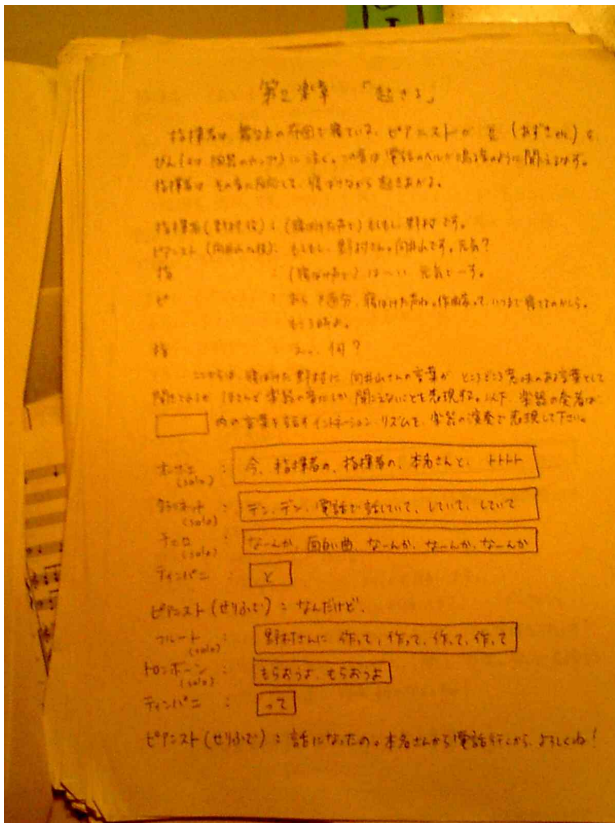 第2楽章 「起きる」
指揮者は、舞台上の布団で寝ている。ピアニストが
びん(又は、陶器のカップ)に 。この音は電話のベルが鳴る音のように聞こえるはず。
指揮者は、その音に反応して、寝ぼけながら起きあがる。
指揮者(野村役):(寝ぼけた声で)もしもし、野村です。
ピアニスト(向井山さん役):もしもし、野村さん。向井山です。元気?
指 :(寝ぼけ声で)は〜い、元気で〜す。
ピ : 寝ぼけた声ね。作曲家って、いつまで寝てるのかしら。
もう 時よ。
指 :えっ、何?
ここからは、寝ぼけた野村に、向井山さんの言葉が、ところどころ意味のある言葉として
聞こえるが、ほとんど楽器の音にしか聞こえないことを表現する。以下、楽器の奏者は
内の言葉を話すイントネーション、リズムで、楽器の演奏で表現して下さい。
オーボエ(solo): 今、指揮者の、指揮者の、本名さんと、トトトト
クラリネット(solo): デン、デン、電話で話していて、していて、していて
チェロ(solo): なーんか、面白い曲、なーんか、なーんか、なーんか
ティンパニ : と
ピアニスト(せりふで):なんだけど、
フルート(solo): 野村さんに、作って、作って、作って、作って
トロンボーン(solo): もらおうよ、もらおうよ
ティンパニ : って
ピアニスト(せりふで):話になったの。本名さんから電話行くから、よろしくね!